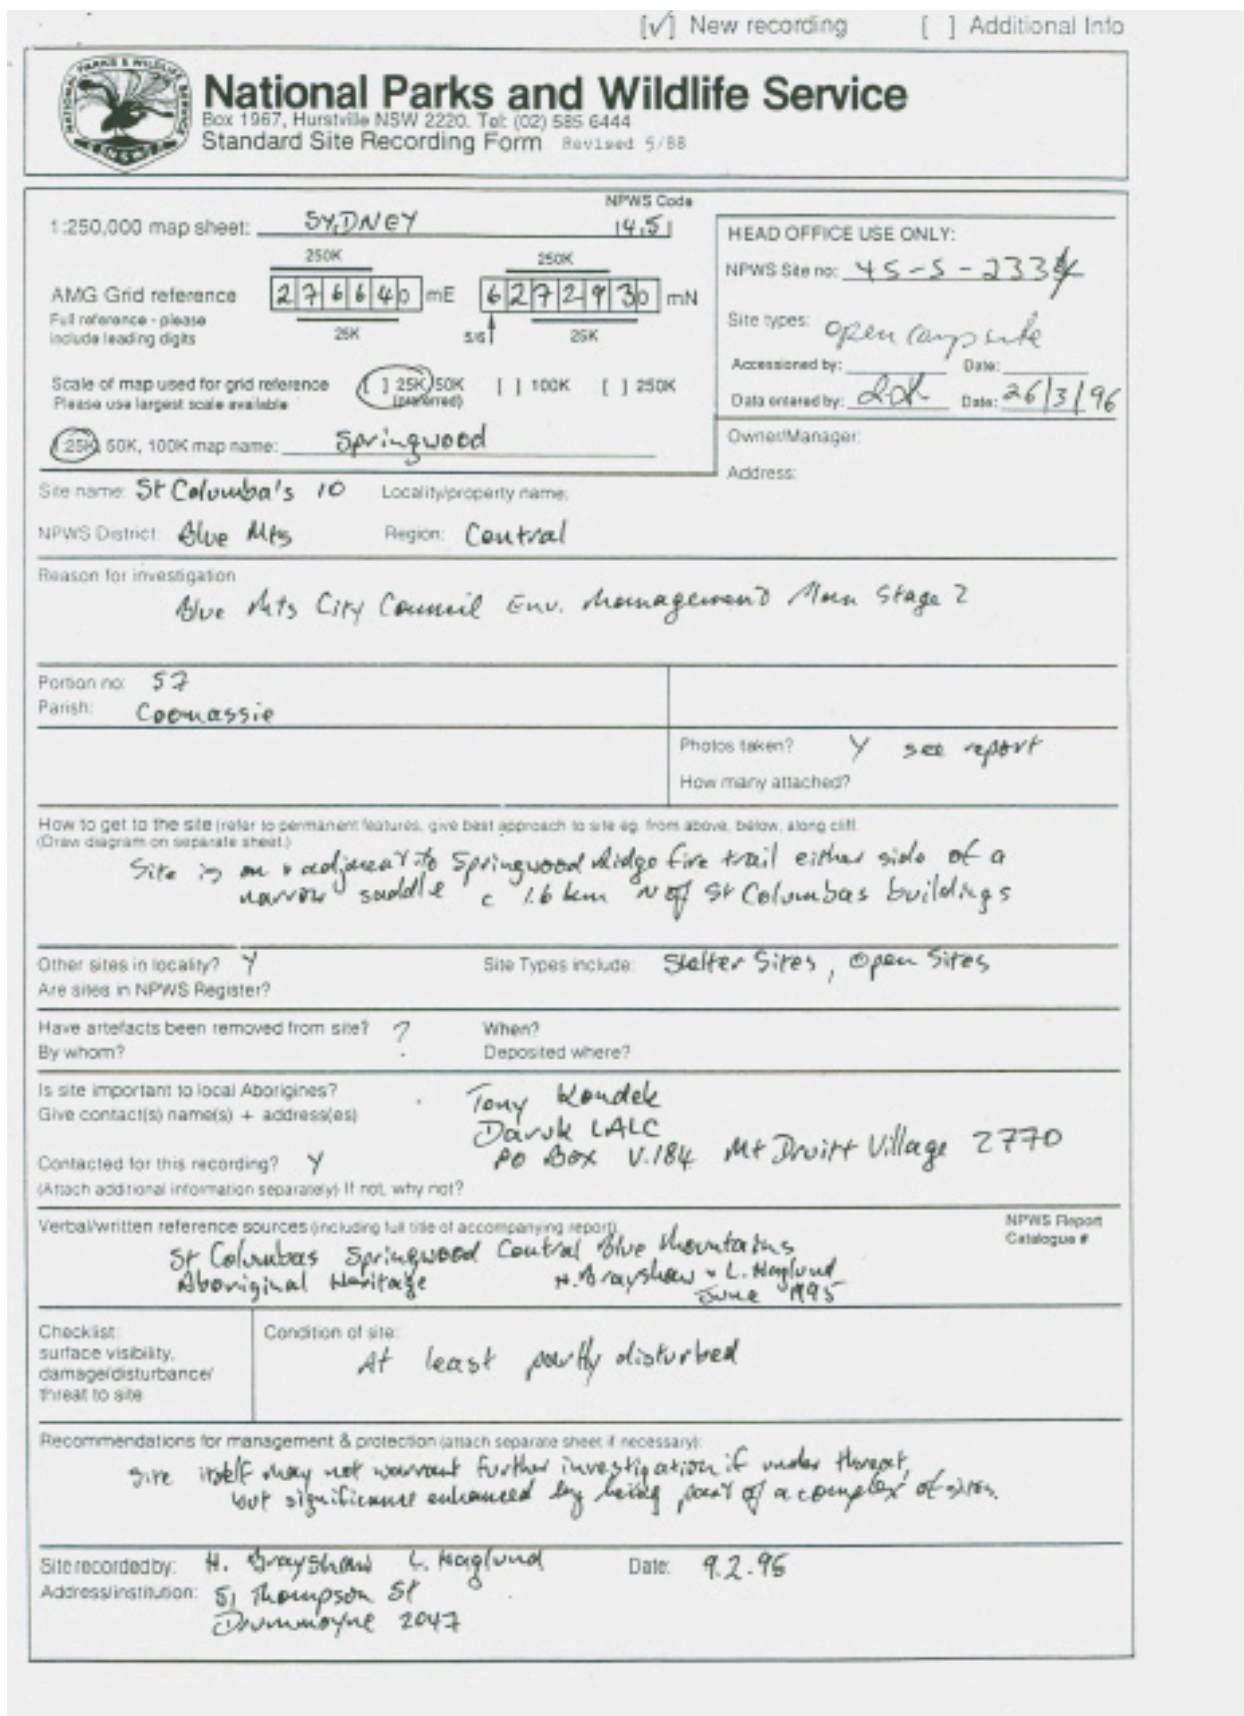 [✓] New recording [ ] Additional Info
NATIONAL PARKS & WILDLIFE SERVICE
National Parks and Wildlife Service
Box 1967, Hurstville NSW 2220. Tel: (02) 585 6444
Standard Site Recording Form Revised 5/88
NPWS Code
1:250,000 map sheet: SYDNEY 14.51
250K 250K
AMG Grid reference 276640 mE 6272930 mN
Full reference - please
include leading digits
25K 5/6 25K
Scale of map used for grid reference [ ] 25K/50K [ ] 100K [ ] 250K
Please use largest scale available (preferred)
25K, 50K, 100K map name: Springwood
HEAD OFFICE USE ONLY:
NPWS Site no: 45-5-233
Site types: open campsite
Accessioned by: Date:
Data entered by: Date: 26/3/96
Owner/Manager:
Address:
Site name: St Columba's 10 Locality/property name:
NPWS District: Blue Mts Region: Central
Reason for investigation
Blue Mts City Council Env. Management Plan Stage 2
Portion no: 57
Parish: Coomassie
Photos taken? Y see report
How many attached?
How to get to the site (refer to permanent features, give best approach to site eg. from above, below, along cliff.
(Draw diagram on separate sheet.)
Site is on + adjacent to Springwood Ridge fire trail either side of a
narrow saddle c 1.6 km N of St Columbas buildings
Other sites in locality? Y Site Types include: Shelter Sites, Open Sites
Are sites in NPWS Register?
Have artefacts been removed from site? ? When?
By whom? Deposited where?
Is site important to local Aborigines?
Give contact(s) name(s) + address(es)
Tony Kondek
Daruk LALC
PO Box V.184 Mt Druitt Village 2770
Contacted for this recording? Y
(Attach additional information separately) If not, why not?
Verbal/written reference sources (including full title of accompanying report) NPWS Report
Catalogue #
St Columbas Springwood Central Blue Mountains
Aboriginal Heritage H. Brayshaw + L. Haglund
June 1995
Checklist:
surface visibility,
damage/disturbance/
threat to site
Condition of site:
At least partly disturbed
Recommendations for management & protection (attach separate sheet if necessary):
Site itself may not warrant further investigation if under threat,
but significance enhanced by being part of a complex of sites.
Site recorded by: H. Brayshaw L. Haglund Date: 9.2.95
Address/institution: 51 Thompson St
Drummoyne 2047